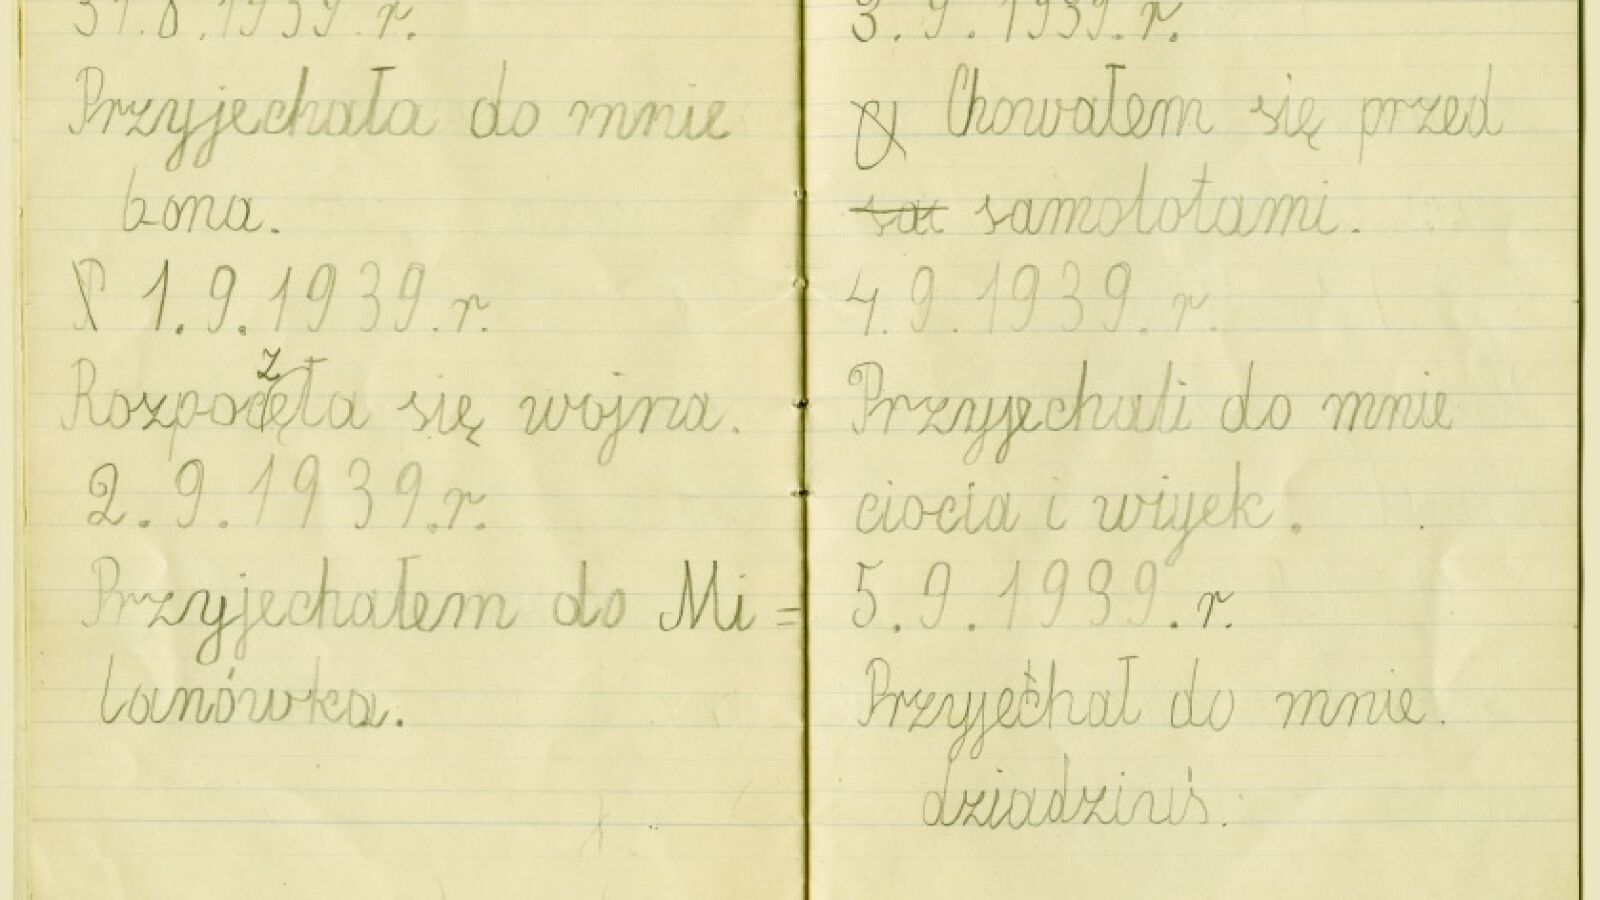 31.8.1939.r.
Przyjechała do mnie
bona.
1.9.1939.r.
Rozpoczęła się wojna.
2.9.1939.r.
Przyjechałem do Mi=
lanówka.
3.9.1939.r.
Chowałem się przed
samolotami.
4.9.1939.r.
Przyjechali do mnie
ciocia i wiyek.
5.9.1939.r.
Przyjechał do mnie.
dziadziuś.